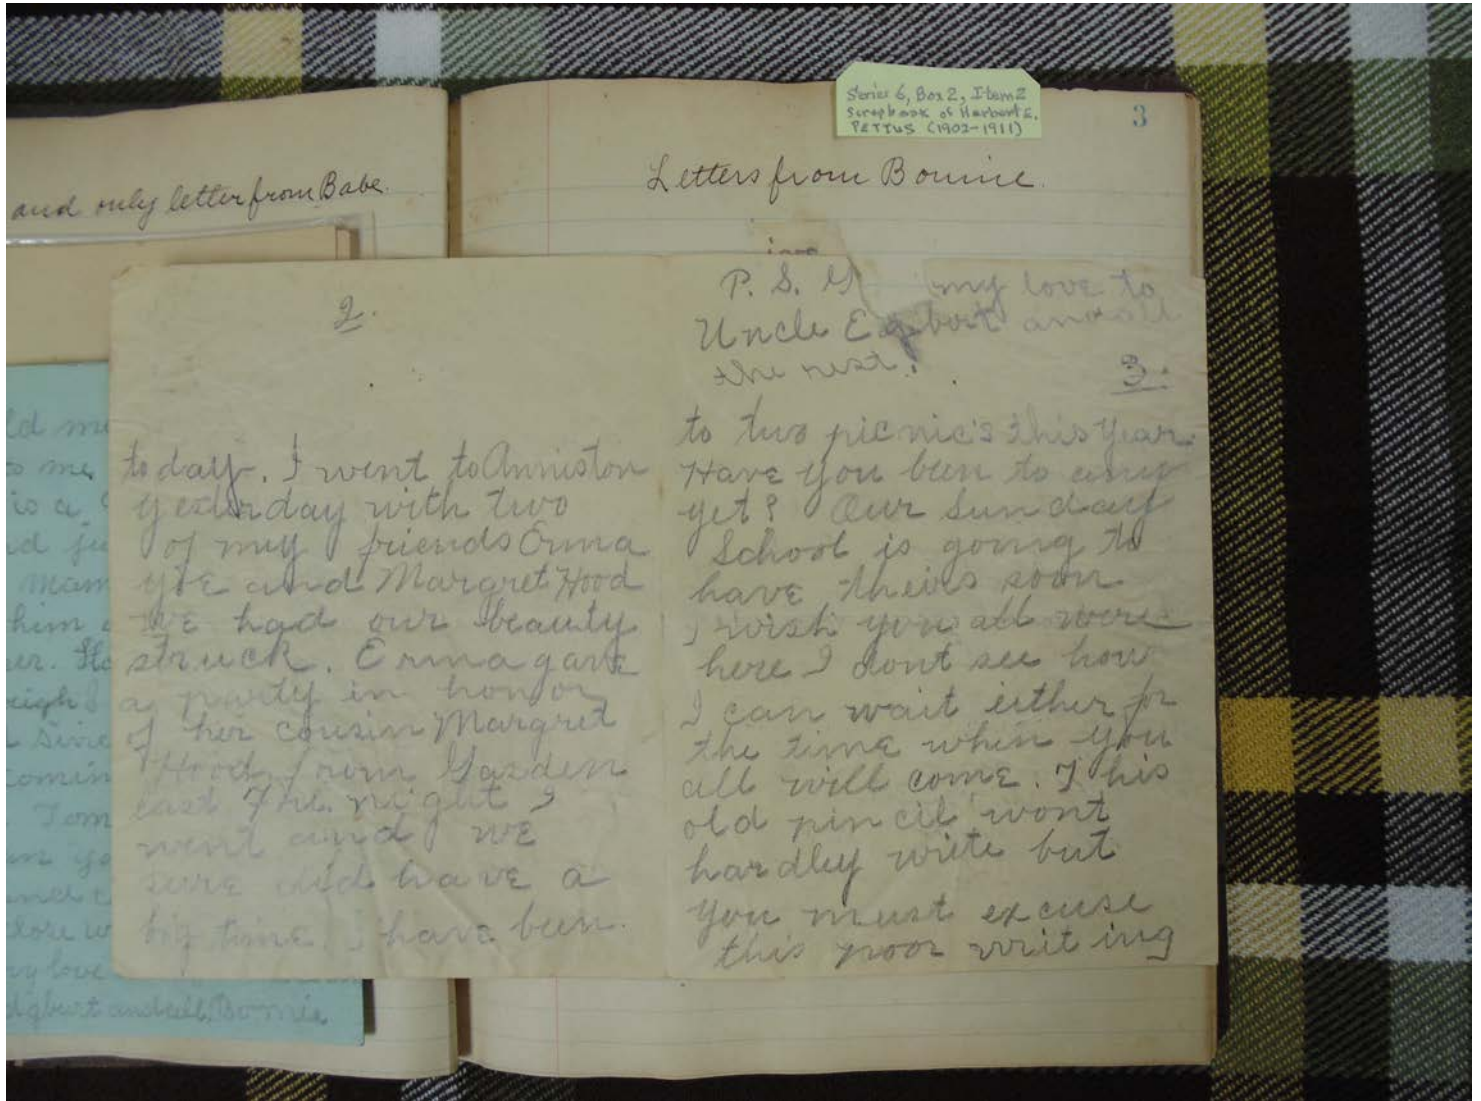 Series 6, Box 2, Item 2
Scrapbook of Herbert E.
PETTUS (1902-1911)
3
and only letter from Babe.
Letters from Bonnie.
2.
today. I went to Anniston
yesterday with two
of my friends Erma
and Margret Hood
We had our beauty
struck. Erma gave
a party in honor
of her cousin Margret
Hood from Gasden
last The. night I
went and we
sure did have a
big time. I have been.
P. S. my love to
Uncle Egbert and all
the rest.
3.
to two picnic's this Year.
Have you been to any
yet? Our Sunday
School is going to
have theirs soon
I wish you all were
here I dont see how
I can wait either for
the time when you
all will come. This
old pincil wont
hardley write but
you must excuse
this poor writing
ld
to me
is a
Mam
him
er.
eigh
Since
comin
Tom
my love
dgburt and all, Bonnie